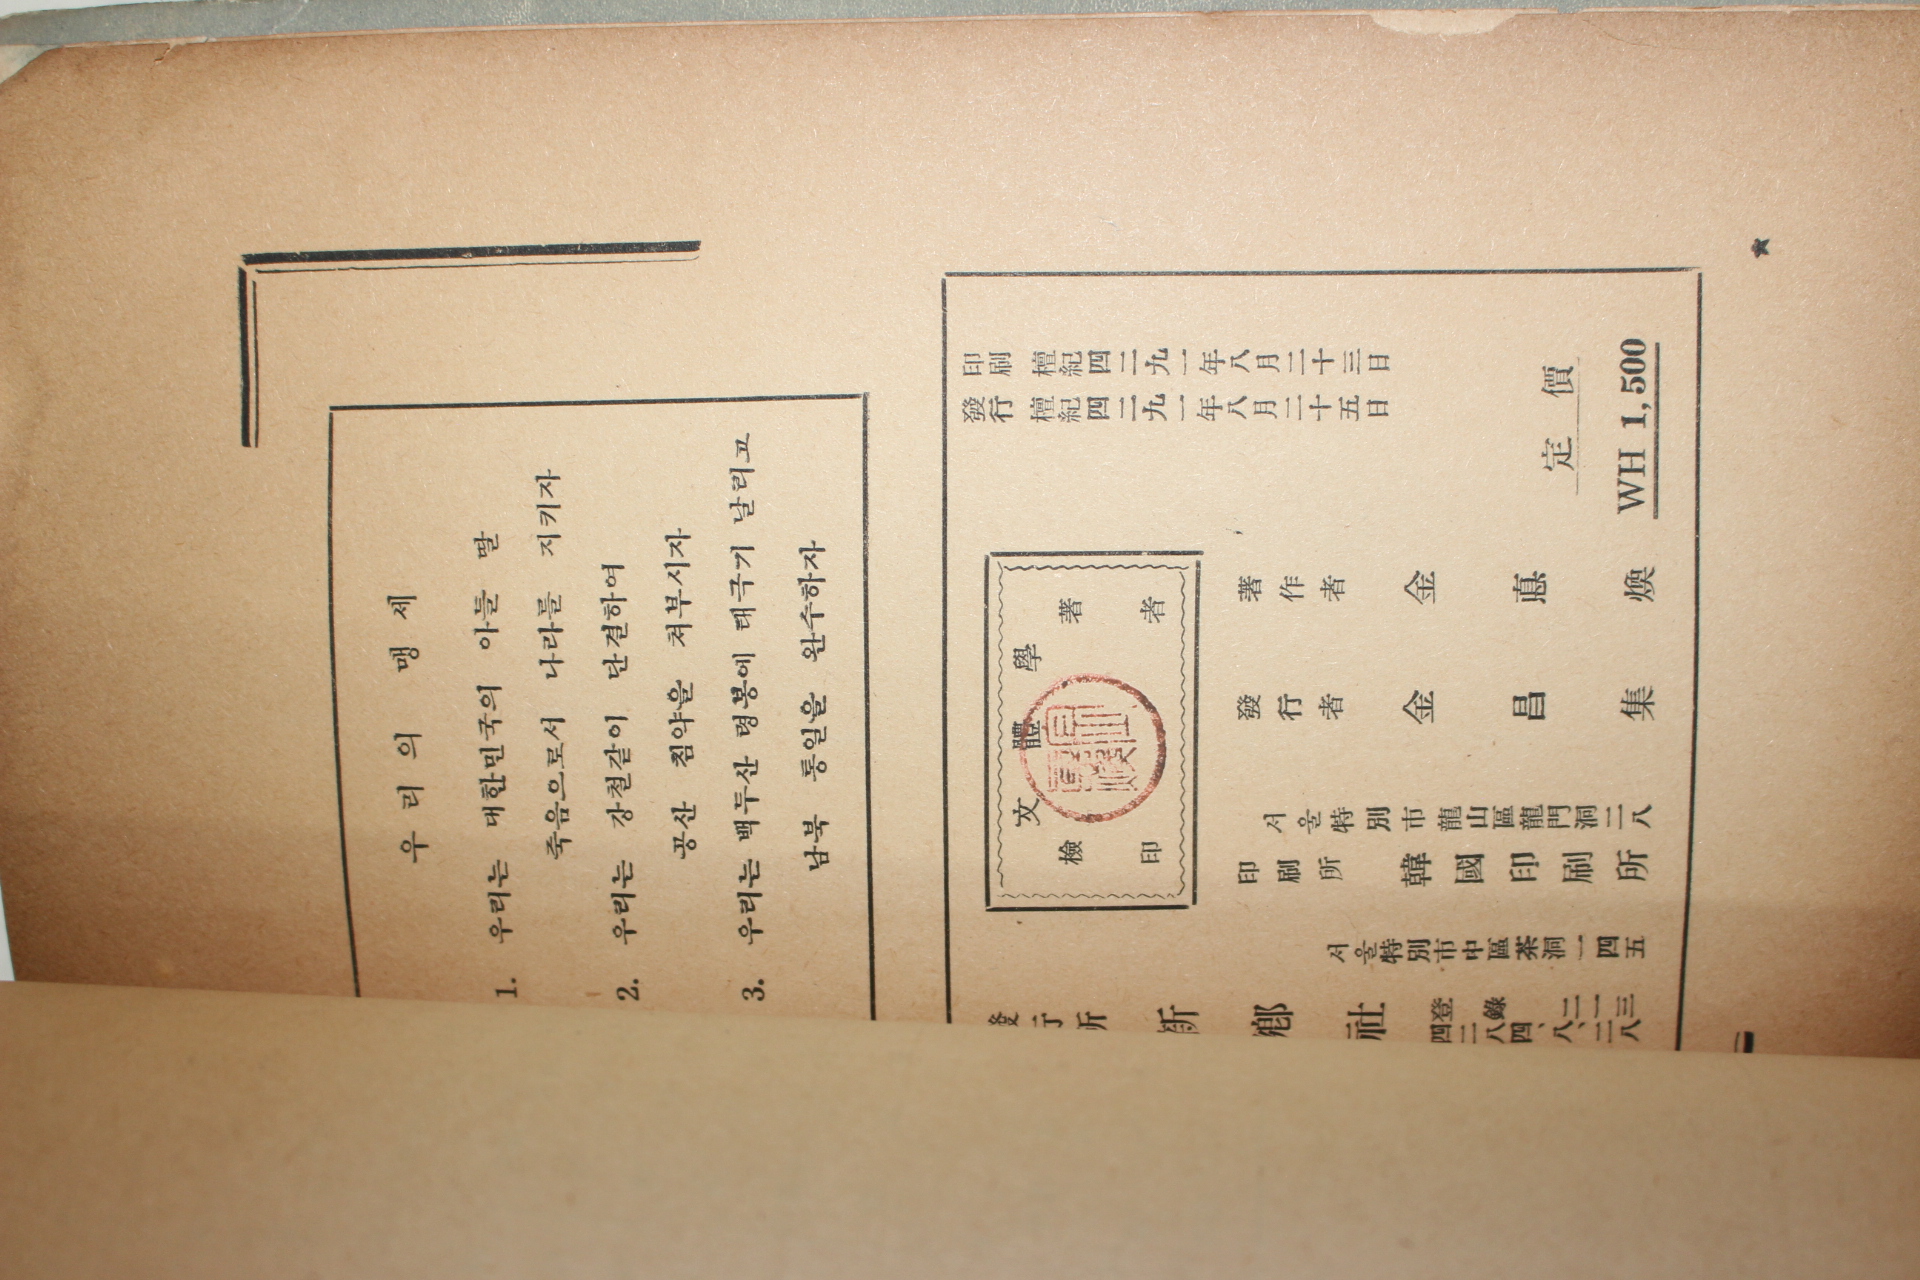 우리의 맹세
1. 우리는 대한민국의 아들 딸
죽음으로서 나라를 지키자
2. 우리는 강철같이 단결하여
공산 침약을 쳐부시자
3. 우리는 백두산 령봉에 태극기 날리고
남북 통일을 완수하자
印刷 檀紀四二九一年八月二十三日
發行 檀紀四二九一年八月二十五日
定價
WH 1,500
文體學
著者
檢印
著作者 金惪煥
發行者 金昌集
서울特別市龍山區龍門洞二八
印刷所 韓國印刷所
서울特別市中區茶洞一四五
發行所 新鄕社
登錄